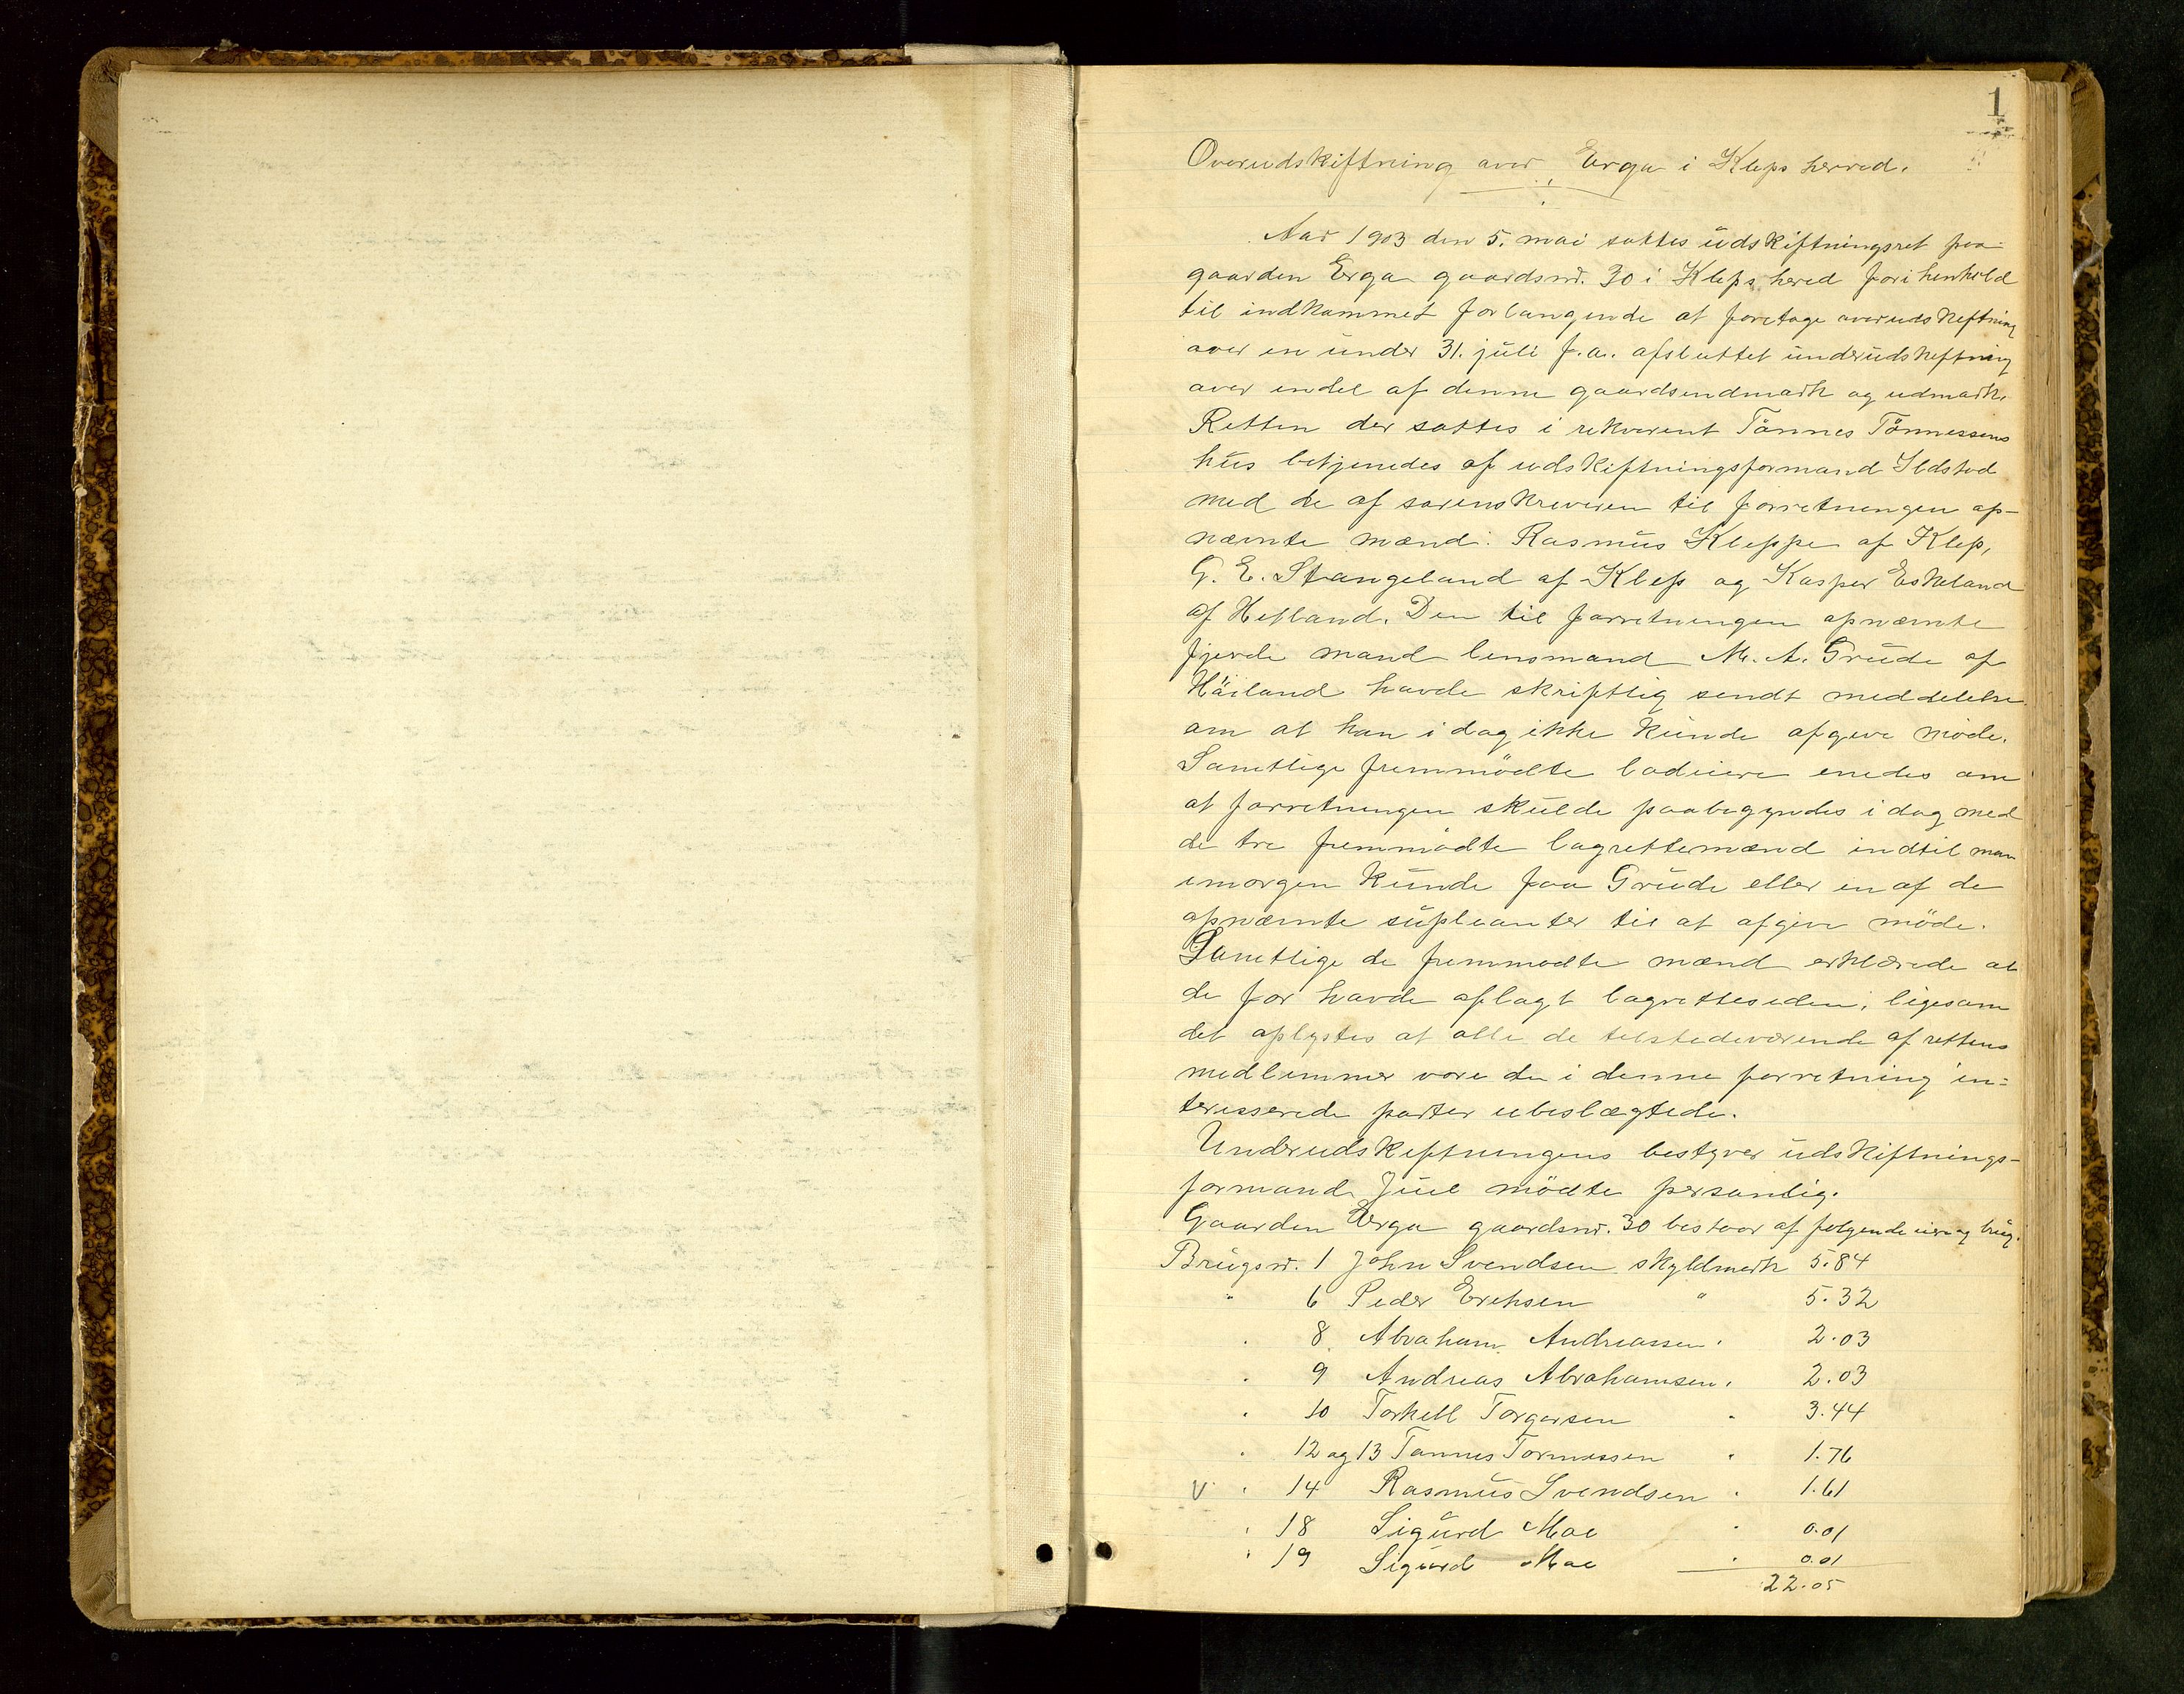 1
Overudskiftning over Erga i Kleps herred.
Aar 1903 den 5. mai sattes udskiftningsret paa
gaarden Erga gaardsnr. 30 i Kleps hered for i henhold
til indkommet forlangende at foretage overudskiftning
over en under 31. juli f.a. afsluttet underudskiftning
over endel af denne gaardsindmark og udmark.
Retten der sattes i rekvirent Tönnes Tönnessens
hus betjenedes af udskiftningsformand Ildstad
med de af sorenskriveren til forretningen op-
nævnte mænd: Rasmus Kleppe af Klep,
G. E. Stangeland af Klep og Kasper Eskeland
af Hetland. Den til forretningen opnævnte
fjerde mand lensmand M. A. Grude af
Höiland havde skriftlig sendt meddelelse
om at han i dag ikke kunde afgive möde.
Samtlige fremmödte lodeiere enedes om
at forretningen skulde paabegyndes i dag med
de tre fremmödte lagrettemænd indtil man
imorgen kunde faa Grude eller en af de
opnævnte supleanter til at afgive möde.
Samtlige de fremmodte mænd erklærede at
de for havde aflagt lagretteseden, ligesom
det oplystes at alle de tilstedeværende af rettens
medlemmer vare de i denne forretning in-
teresserede parter ubeslægtede.
Underudskiftningens bestyrer udskiftnings-
formand Juel mödte personlig.
Gaarden Erga gaardsnr. 30 bestaar af folgende eiere og brug.
Brugsnr. 1 John Svendsen skyldmark 5.84
" 6 Peder Eriksen " 5.32
" 8 Abraham Andreassen " 2.03
" 9 Andreas Abrahamsen " 2.03
" 10 Torkell Torgersen " 3.44
" 12 og 13 Tönnes Tönnessen " 1.76
V " 14 Rasmus Svendsen " 1.61
" 18 Sigurd Moe " 0.01
" 19 Sigurd Moe " 0.01
22.05